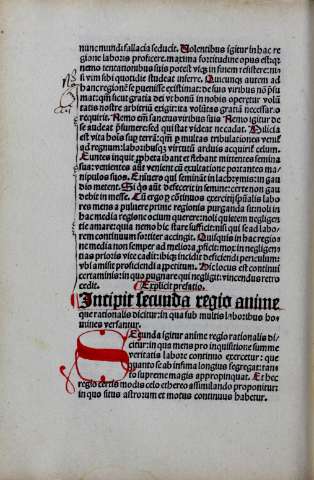 nunc mundi fallacia seducit. Volentibus igitur in hac re
gione laboris proficere. maxima fortitudine opus est: qz
nemo tentationibus suis potest vsqz in finem resistere: ni
si vim sibi quotidie studeat inferre. Quicunqz autem ad
hanc regionem se puenisse existimat: de suis viribus non psu
mat: qm sicut gratia dei vt bonum in nobis operetur volū
tatis nostre arbitrium exigit: ita volūtas gratiā necessario
requirit. Nemo em sanctus viribus suis Nemo igitur de
se audeat psumere: sed qui stat videat ne cadat. Milicia
est vita hominis sup terrā: qm p multas tribulationes venit
ad regnum: laboribusqz virtutū arduis acquirit celum.
Euntes inquit ppheta ibant et flebant mittentes semina
sua: venientes aūt venient cū exultatione portantes ma
nipulos suos. Eni vero qui seminant in lachrymis: in gau
dio metent. Si quis aūt defecerit in semine: certe non gau
debit in messe. Cum ergo quotidianos exercitij spūalis labo
res mens a puluere prime regionis purganda sit: noli in
hac media regione ocium querere: noli quietem negligen
tie amare: quia nemo hic stare sufficit: nisi qui se ad labo
rem continuum fortiter accingit. Quisquis in hac regio
ne media non semper ad meliora pficit: mox in negligen
tias prioris vite cadit: ibiqz incidit deficiendi periculum:
vbi amisit proficiendi appetitum. Hic locus est continui
certaminis: in quo pugnare qui negligit: vincendus retro
cedit. Explicit prefatio.
Incipit secunda regio anime
que rationalis dicitur: In qua sub multis laboribus ho
mines versantur.
SEcunda igitur anime regio rationalis di
citur: in qua mens pro inquisitione summe
veritatis labore continuo exercetur: que
quanto se ab infima longius segregat: tan
to supreme magis appropinquat. Et hec
regio certis modis celo ethereo assimilando proponitur:
in quo situs astrorum et motus continuus habetur.